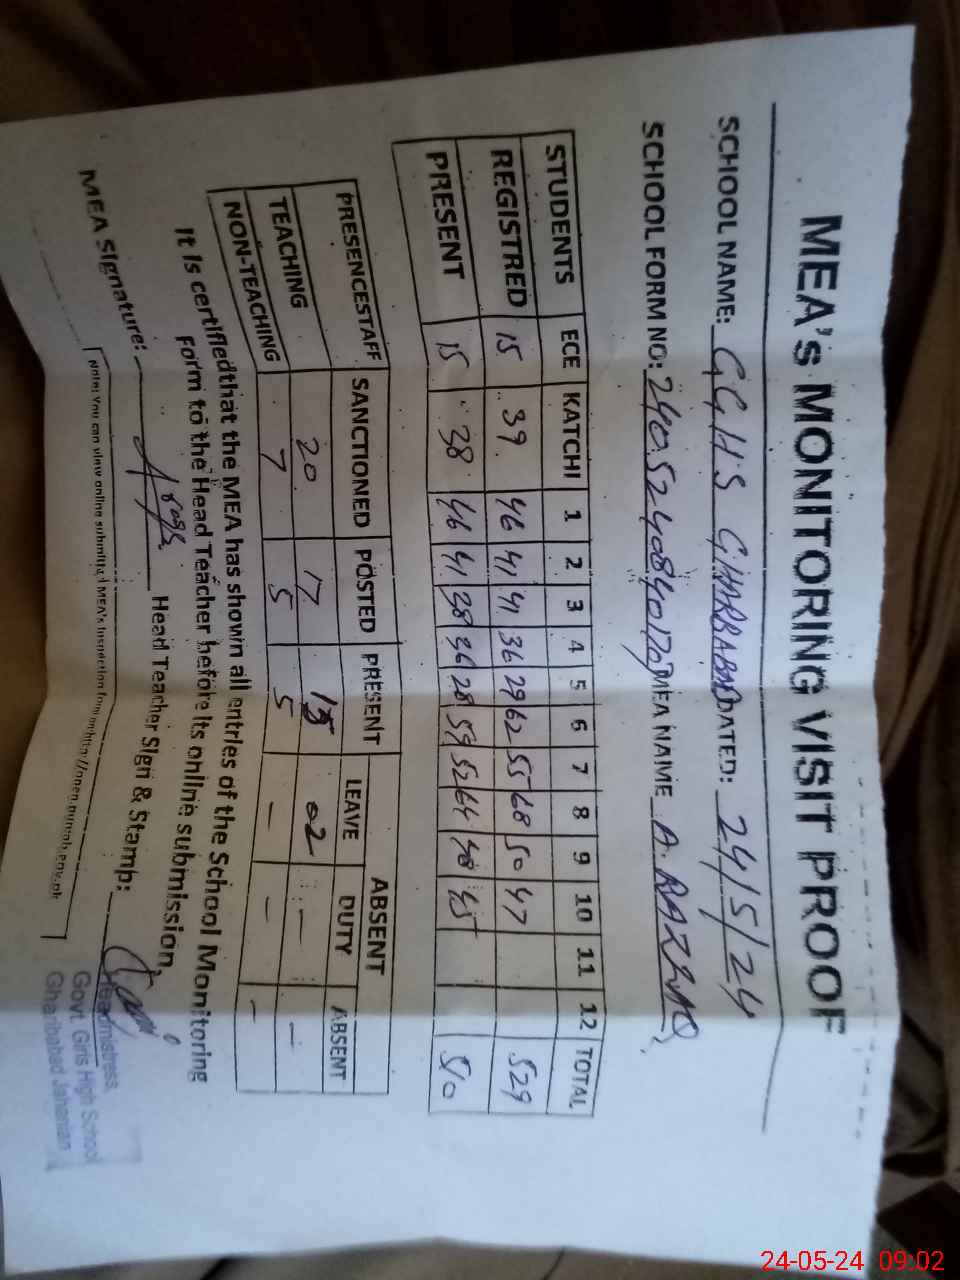 MEA's MONITORING VISIT PROOF
SCHOOL NAME: G.G.H.S GHARIBABAD DATED: 24/5/24
SCHOOL FORM NO: MEA NAME A. RAZZAQ
STUDENTS ECE KATCHI 1 2 3 4 5 6 7 8 9 10 11 12 TOTAL
REGISTRED 15 39 46 41 41 36 29 62 55 68 50 47 529
PRESENT 15 38 46 41 38 36 28 59 52 64 48 45 510
PRESENCESTAFF SANCTIONED POSTED PRESENT ABSENT
LEAVE DUTY ABSENT
TEACHING 20 17 15 02 - -
NON-TEACHING 7 5 5 - - -
It is certifiedthat the MEA has shown all entries of the School Monitoring
Form to the Head Teacher before its online submission.
MEA Signature: Head Teacher Sign & Stamp:
Headmistress,
Govt. Girls High School
Gharibabad Jahanian
Note: You can view online submitted MEA's Inspection form on http://open.punjab.gov.pk
24-05-24 09:02